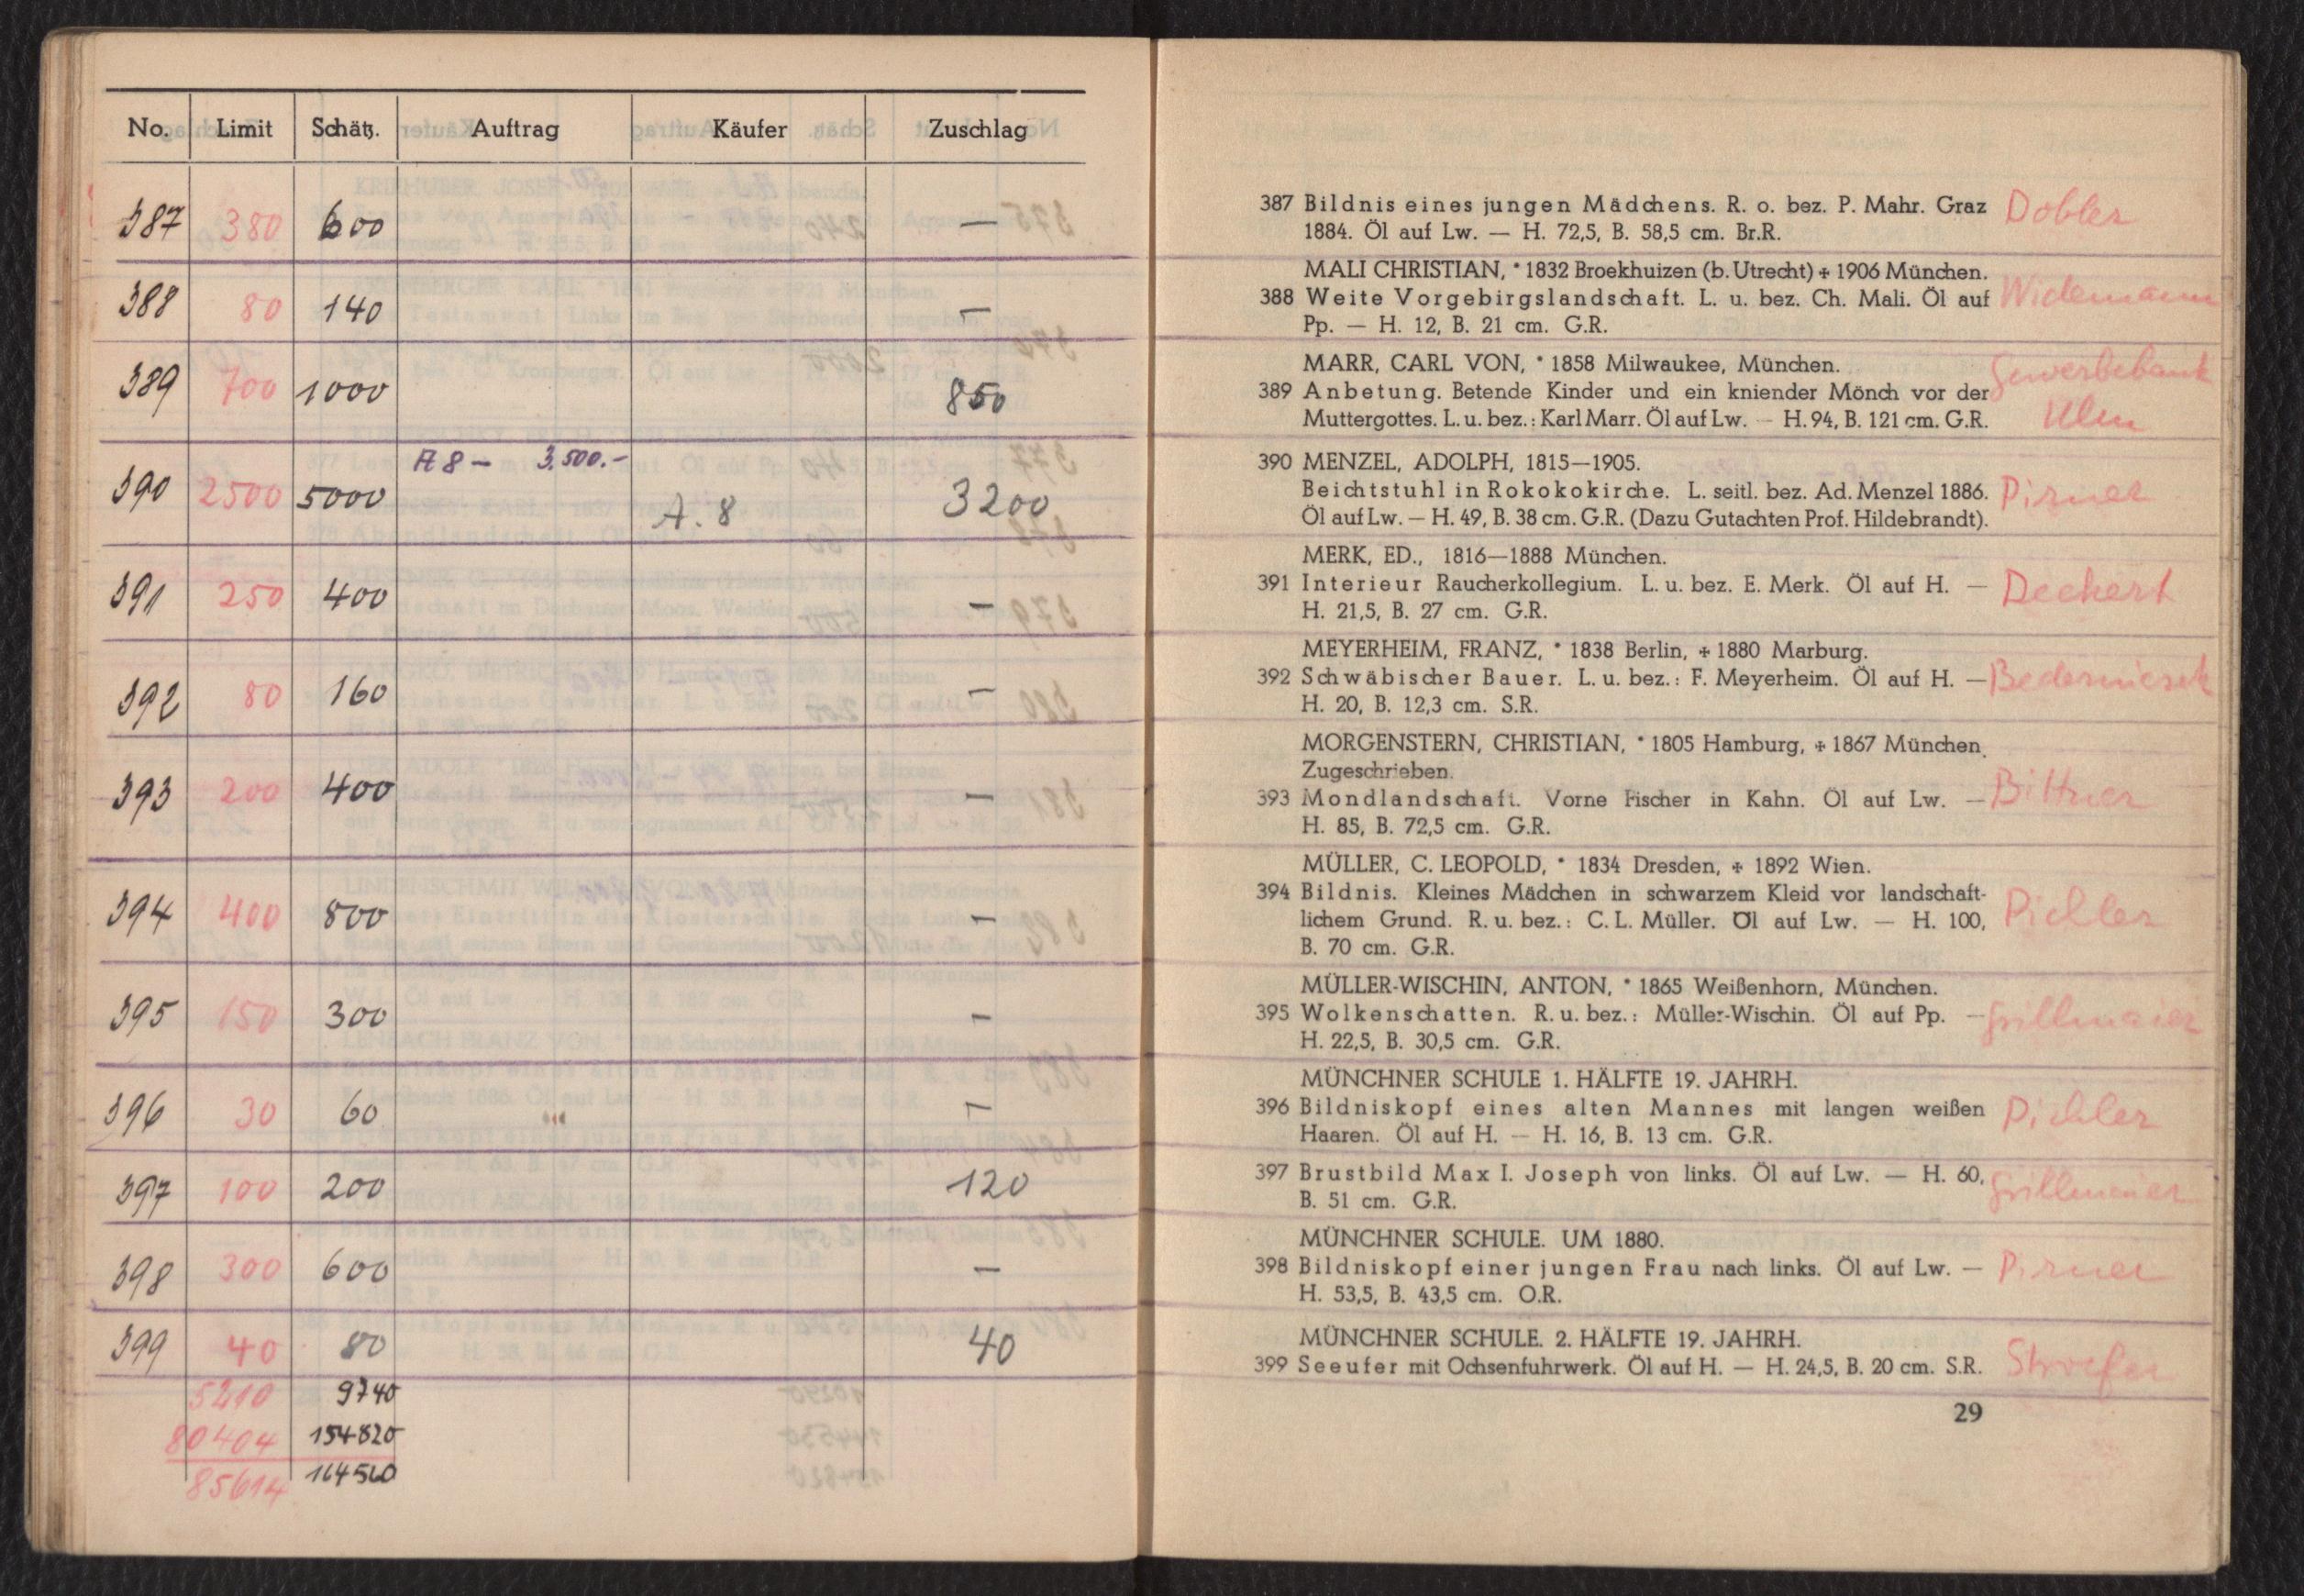 No. Limit Schätz. Auftrag Käufer Zuschlag
387 380 600 —
388 80 140 —
389 700 1000 850
A 8 — 3.500.-
390 2500 5000 A. 8 3200
391 250 400 —
392 80 160 —
393 200 400 —
394 400 800 —
395 150 300 —
396 30 60 —
397 100 200 120
398 300 600 —
399 40 80 40
5210 9740
80404 154820
85614 164560
387 Bildnis eines jungen Mädchens. R. o. bez. P. Mahr. Graz Dobler
1884. Öl auf Lw. — H. 72,5, B. 58,5 cm. Br.R.
MALI CHRISTIAN, * 1832 Broekhuizen (b. Utrecht) ✢ 1906 München.
388 Weite Vorgebirgslandschaft. L. u. bez. Ch. Mali. Öl auf Widemann
Pp. — H. 12, B. 21 cm. G.R.
MARR, CARL VON, * 1858 Milwaukee, München. Gewerbebank
389 Anbetung. Betende Kinder und ein kniender Mönch vor der
Muttergottes. L. u. bez.: Karl Marr. Öl auf Lw. — H. 94, B. 121 cm. G.R. Ulm
390 MENZEL, ADOLPH, 1815—1905.
Beichtstuhl in Rokokokirche. L. seitl. bez. Ad. Menzel 1886. Pirner
Öl auf Lw. — H. 49, B. 38 cm. G.R. (Dazu Gutachten Prof. Hildebrandt).
MERK, ED., 1816—1888 München.
391 Interieur Raucherkollegium. L. u. bez. E. Merk. Öl auf H. — Deckert
H. 21,5, B. 27 cm. G.R.
MEYERHEIM, FRANZ, * 1838 Berlin, ✢ 1880 Marburg.
392 Schwäbischer Bauer. L. u. bez.: F. Meyerheim. Öl auf H. —
H. 20, B. 12,3 cm. S.R.
MORGENSTERN, CHRISTIAN, * 1805 Hamburg, ✢ 1867 München.
Zugeschrieben.
393 Mondlandschaft. Vorne Fischer in Kahn. Öl auf Lw. — Bittner
H. 85, B. 72,5 cm. G.R.
MÜLLER, C. LEOPOLD, * 1834 Dresden, ✢ 1892 Wien.
394 Bildnis. Kleines Mädchen in schwarzem Kleid vor landschaft-
lichem Grund. R. u. bez.: C. L. Müller. Öl auf Lw. — H. 100, Pichler
B. 70 cm. G.R.
MÜLLER-WISCHIN, ANTON, * 1865 Weißenhorn, München.
395 Wolkenschatten. R. u. bez.: Müller-Wischin. Öl auf Pp. — Grillmaier
H. 22,5, B. 30,5 cm. G.R.
MÜNCHNER SCHULE 1. HÄLFTE 19. JAHRH.
396 Bildniskopf eines alten Mannes mit langen weißen Pichler
Haaren. Öl auf H. — H. 16, B. 13 cm. G.R.
397 Brustbild Max I. Joseph von links. Öl auf Lw. — H. 60, Grillmaier
B. 51 cm. G.R.
MÜNCHNER SCHULE. UM 1880.
398 Bildniskopf einer jungen Frau nach links. Öl auf Lw. — Pirner
H. 53,5, B. 43,5 cm. O.R.
MÜNCHNER SCHULE. 2. HÄLFTE 19. JAHRH.
399 Seeufer mit Ochsenfuhrwerk. Öl auf H. — H. 24,5, B. 20 cm. S.R.
29